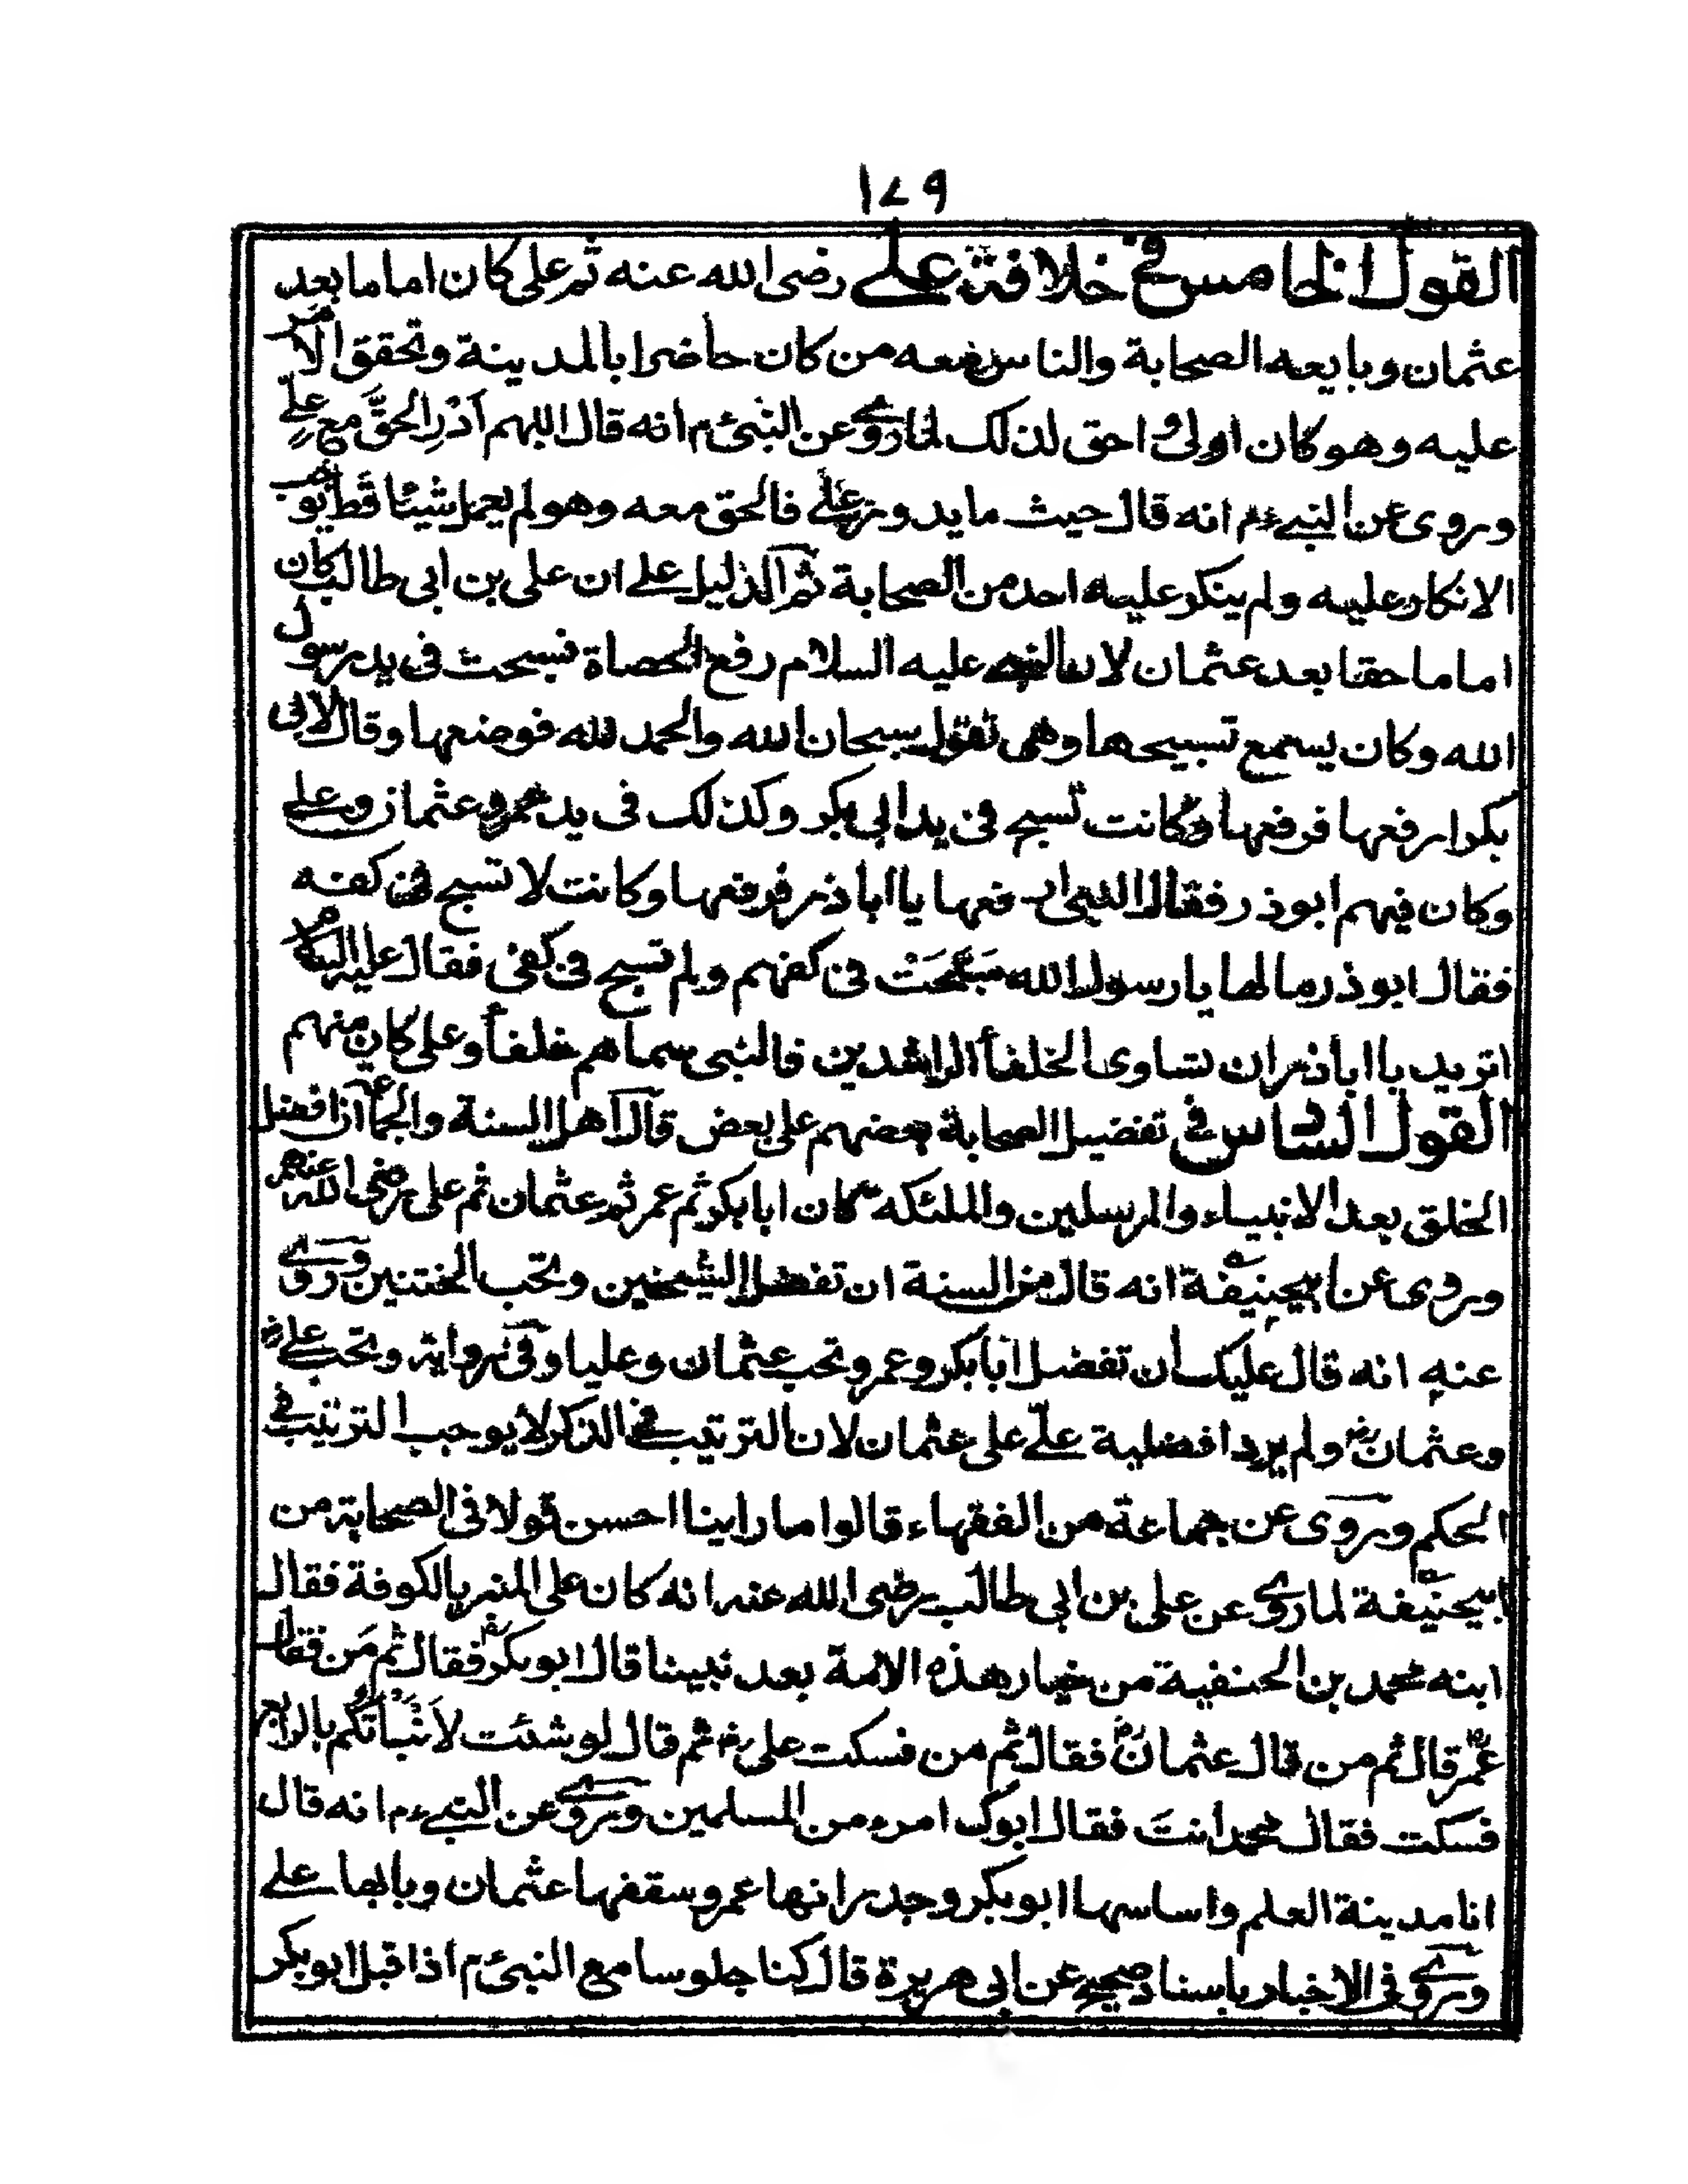 ١٧٩
القول الخامس في خلافة علي رضى الله عنه ثم على كان اماما بعد
عثمان وبايعه الصحابة والناس معه من كان حاضرا بالمدينة وتحقق الامر
عليه وهو كان اولى و احق لذلك لما روى عن النبىء م انه قال اللهم اَدْرِ الحقَّ مع علىٍّ
وروى عن النبىء م انه قال حيث ما يدور علي فالحق معه وهو لم يعمل شيئا قط يوجب
الانكار عليه ولم ينكر عليه احد من الصحابة ثم الدليل على ان على بن ابى طالب كان
اماما حقا بعد عثمان لان النبى عليه السلام رفع الحصاة فسبحت فى يد رسول
الله وكان يسمع تسبيحها وهى تقول سبحان الله والحمد لله فوضعها وقال لابى
بكر ارفعها فرفعها وكانت تسبح فى يد ابى بكر وكذلك فى يد عمر وعثمان وعلى
وكان فيهم ابو ذر فقال النبى ارفعها يا ابا ذر فرفعها وكانت لا تسبح فى كفه
فقال ابو ذر ما لها يا رسول الله سَبَّحَتْ فى كفهم ولم تسبح فى كفى فقال عليه السلام
اتريد يا ابا ذر ان تساوى الخلفاء الراشدين فالنبى سماهم خلفاء وعلى كان منهم
القول السادس في تفضيل الصحابة بعضهم على بعض قال اهل السنة والجماعة ان افضل
الخلق بعد الانبياء والمرسلين والملئكه كان ابا بكر ثم عمر ثم عثمان ثم على رضى الله عنهم
وروى عن ابيحنيفة انه قال من السنة ان تفضل الشيخين وتحب الختنين وروى
عنه انه قال عليك ان تفضل ابا بكر وعمر وتحب عثمان وعليا وفى رواية وتحب على
وعثمان ولم يرد افضلية علىّ على عثمان لان الترتيب فى الذكر لا يوجب الترتيب فى
الحكم وروى عن جماعة من الفقهاء قالوا ما راينا احسن قولا فى الصحابة من
ابيحنيفة لما روى عن على بن ابى طالب رضى الله عنه انه كان على المنبر بالكوفة فقال
ابنه محمد بن الحنفية من خيار هذه الامة بعد نبينا قال ابو بكر فقال ثم مَن فقال
عمر قال ثم من قال عثمان فقال ثم من فسكت على ثم قال لو شئت لَاَنْبَأتُكُم بالرابع
فسكت فقال محمد انتَ فقال ابوك امرء من المسلمين وروى عن النبىء م انه قال
انا مدينة العلم واساسها ابو بكر وجدرانها عمر وسقفها عثمان وبابها على
وروى فى الاخبار باسناد صحيح عن ابى هريرة قال كنا جلوسا مع النبىء م اذا قبل ابو بكر